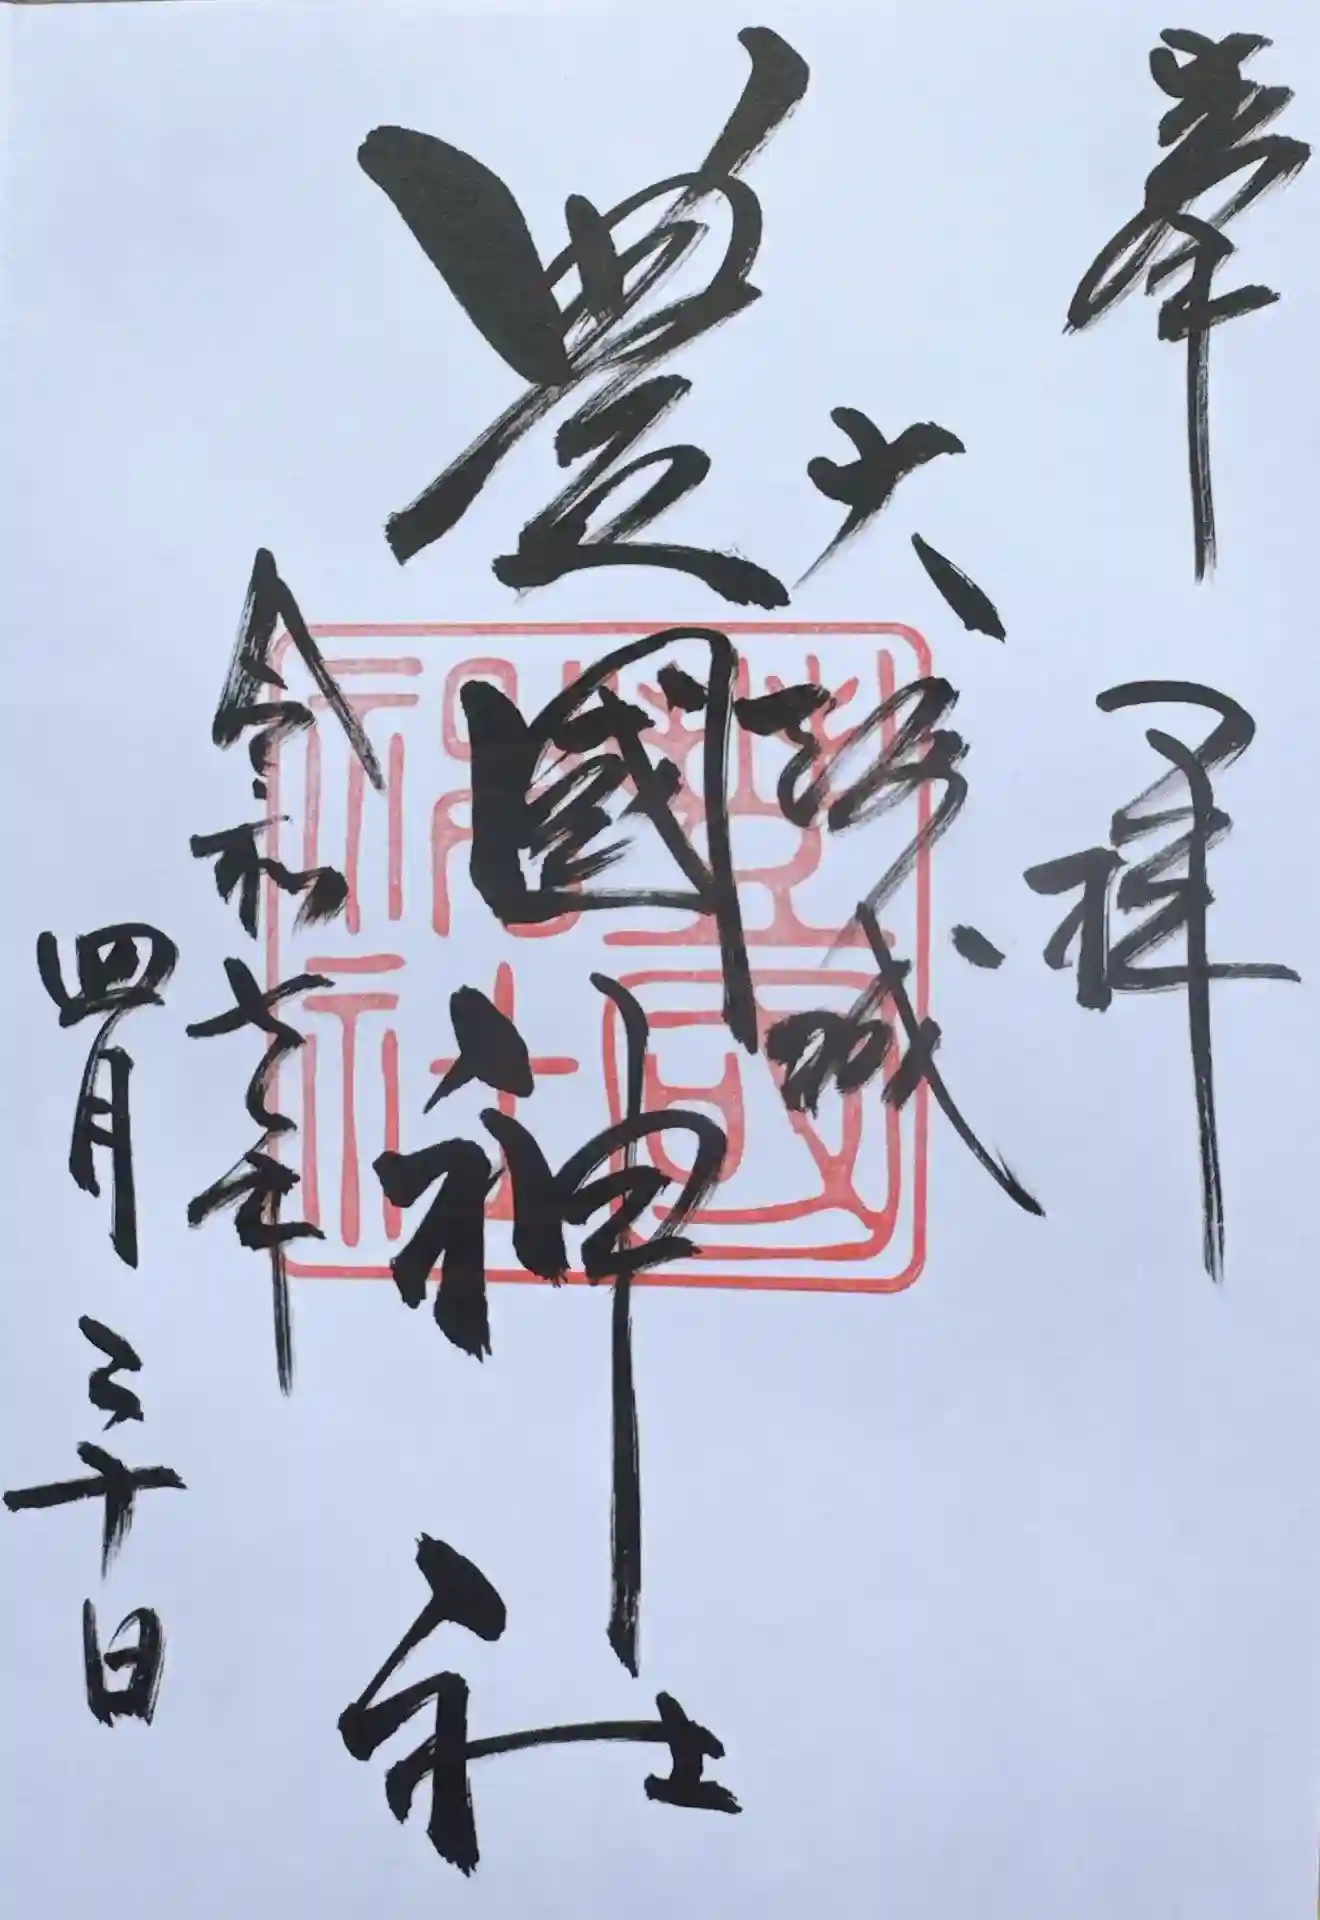 奉拝
大阪城
豊國神社
豊國神社
令和七年
四月三十日